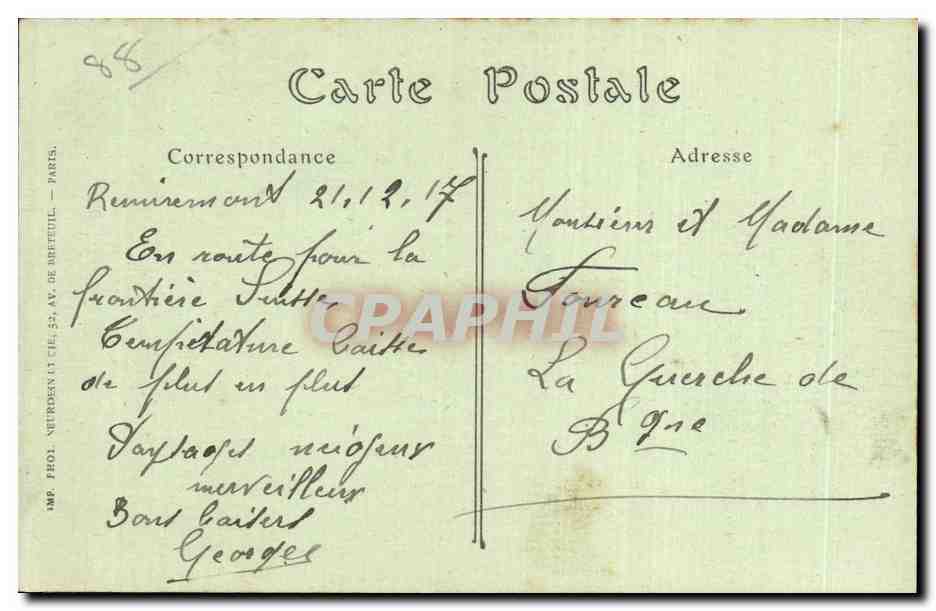 88
Carte Postale
Correspondance
Adresse
Remiremont 21.12.17
En route pour la
frontière Suisse
Température baisse
de plus en plus
Paysages neigeux
merveilleux
Bons baisers
Georges
Monsieur et Madame
Foureau
La Guerche de
Bgne
IMP. PHOT. NEURDEIN ET CIE, 52, AV. DE BRETEUIL. — PARIS.
CPAPHIL